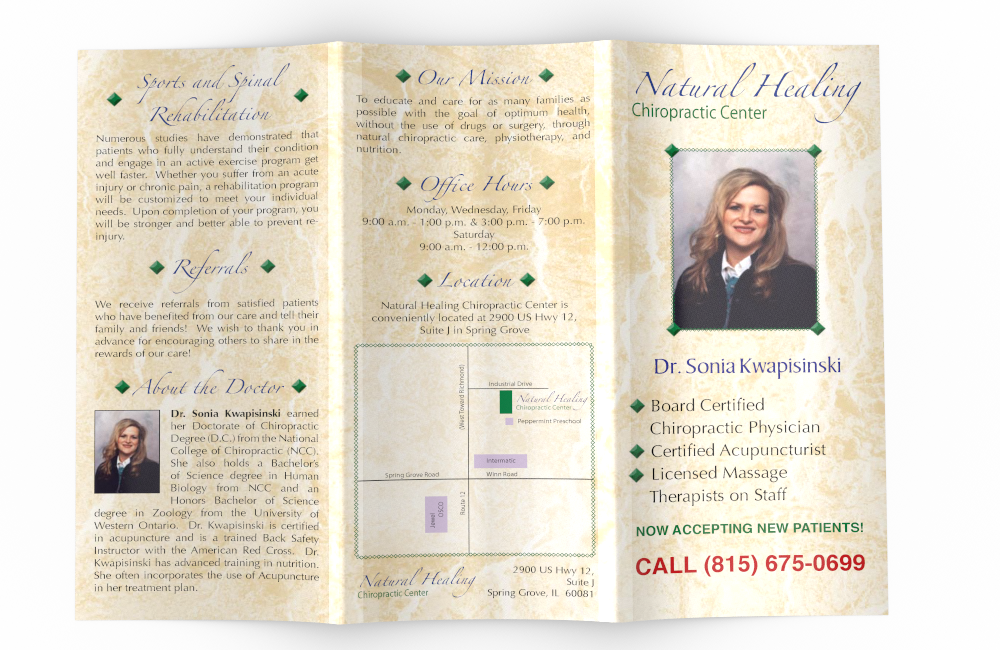 Sports and Spinal
Rehabilitation
Numerous studies have demonstrated that
patients who fully understand their condition
and engage in an active exercise program get
well faster. Whether you suffer from an acute
injury or chronic pain, a rehabilitation program
will be customized to meet your individual
needs. Upon completion of your program, you
will be stronger and better able to prevent re-
injury.
Referrals
We receive referrals from satisfied patients
who have benefited from our care and tell their
family and friends! We wish to thank you in
advance for encouraging others to share in the
rewards of our care!
About the Doctor
Dr. Sonia Kwapisinski earned
her Doctorate of Chiropractic
Degree (D.C.) from the National
College of Chiropractic (NCC).
She also holds a Bachelor's
of Science degree in Human
Biology from NCC and an
Honors Bachelor of Science
degree in Zoology from the University of
Western Ontario. Dr. Kwapisinski is certified
in acupuncture and is a trained Back Safety
Instructor with the American Red Cross. Dr.
Kwapisinski has advanced training in nutrition.
She often incorporates the use of Acupuncture
in her treatment plan.
Our Mission
To educate and care for as many families as
possible with the goal of optimum health,
without the use of drugs or surgery, through
natural, chiropractic care, physiotherapy, and
nutrition.
Office Hours
Monday, Wednesday, Friday
9:00 a.m. - 1:00 p.m. & 3:00 p.m. - 7:00 p.m.
Saturday
9:00 a.m. - 12:00 p.m.
Location
Natural Healing Chiropractic Center is
conveniently located at 2900 US Hwy 12,
Suite J in Spring Grove
(West Toward Richmond)
Industrial Drive
Natural Healing
Chiropractic Center
Peppermint Preschool
Intermatic
Spring Grove Road
Winn Road
Jewel
OSCO
Route 12
Natural Healing
Chiropractic Center
2900 US Hwy 12,
Suite J
Spring Grove, IL 60081
Natural Healing
Chiropractic Center
Dr. Sonia Kwapisinski
Board Certified
Chiropractic Physician
Certified Acupuncturist
Licensed Massage
Therapists on Staff
NOW ACCEPTING NEW PATIENTS!
CALL (815) 675-0699